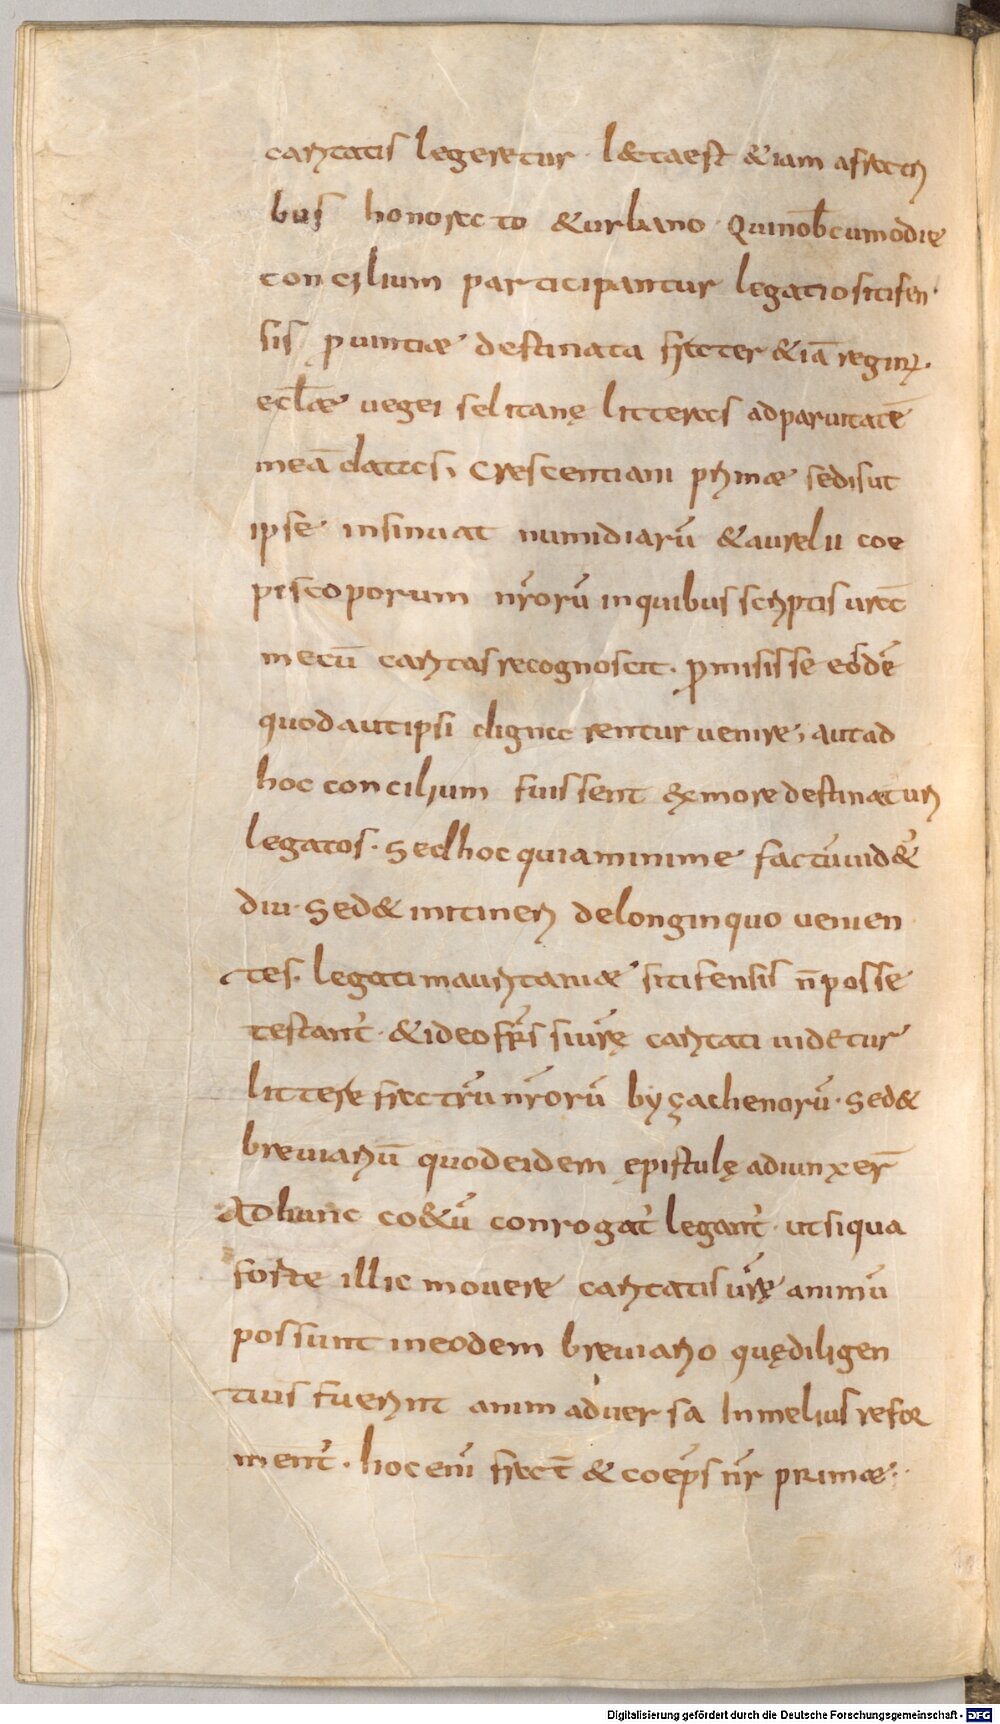 caritatis legeretur · l&ta est &iam a fratri
bus honorato &urbano · Qui nob̄cum odie
concilium participantur legatio sitifen·
sis ꝓuintiæ destinata frater &iā regini·
ecl̄æ uegei selitanę litteras ad paruitatē
meā datas, Crescentiani primæ sedis ut
ipse insinuat numidiarū & aurelii coe
piscoporum nr̄orū inquibus scriptis urāe
mecū caritas recognoscit · ꝓmisisse eosdē
quod aut ipsi digna rentur uenire, aut ad
hoc concilium fuissent &x more destinaturi
legatos · Sed hoc quia minime factū uid&
diu · Sed & initineri de longinquo uenien
tes. legati mauritaniæ sitifensis n̄ posse
testant̄ · & ideo fr̄s si ur̄ę caritati uidetur
littere fratrū nr̄orū byçachenorū · Sed&
breuiariū quod eidem epistulę adiunxer̄
Ad hunc co&ū conrogat̄ legant̄ · ut siqua
forte illic mouere caritatis ur̄ę animū
possunt in eodem breuiario quę diligen
tius fuerint animaduersa In melius refor
ment̄ · hoc eni frat̄ & coep̄s nr̄ primæ ·
Digitalisierung gefördert durch die Deutsche Forschungsgemeinschaft - DFG